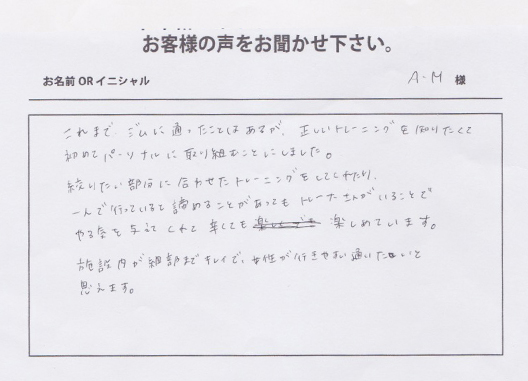 お客様の声をお聞かせ下さい。
お名前 OR イニシャル A・M 様
これまで ジムに通ったことはあるが、正しいトレーニングを知りたくて
初めてパーソナルに取り組むことにしました。
絞りたい部位に合わせたトレーニングをしてくれたり、
一人で行っていると諦めることがあってもトレーナーさんがいることで
やる気を与えてくれて 辛くても 楽しめています。
施設内が細部までキレイで、女性が行きやすい通いたいと
思えます。